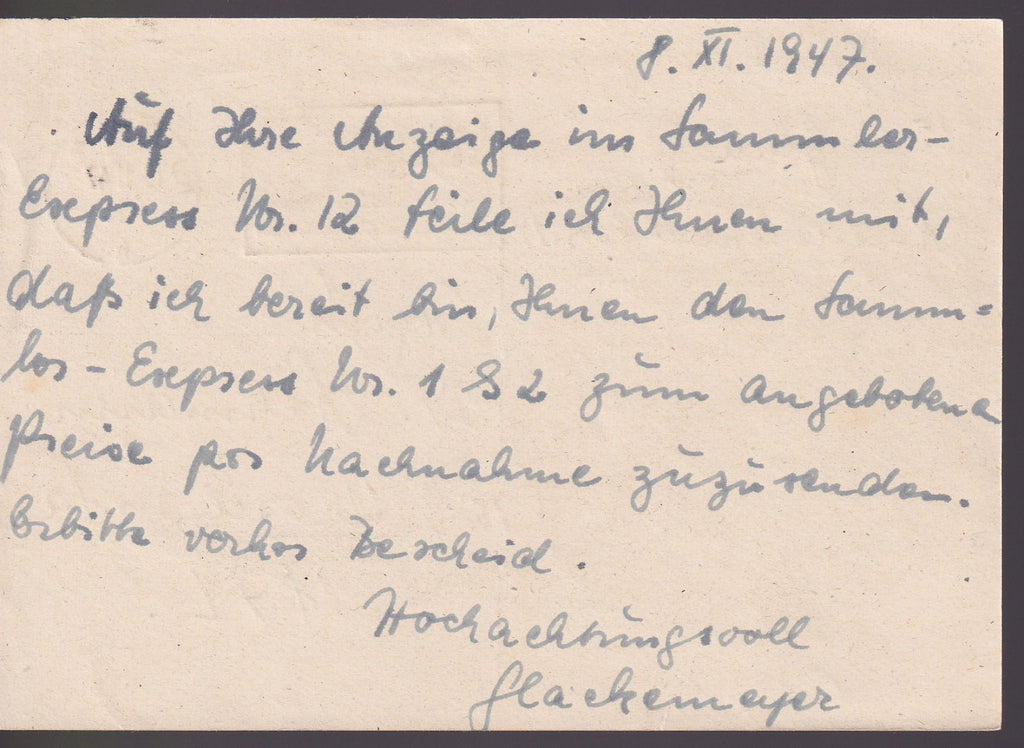 8. XI. 1947.
Auf Ihre Anzeige im Sammler-
Express Nr. 12 teile ich Ihnen mit,
daß ich bereit bin, Ihnen den Samm=
ler-Express Nr. 1 & 2 zum angebotenen
Preise per Nachnahme zuzusenden.
Erbitte vorher Bescheid.
Hochachtungsvoll
Glackemeyer